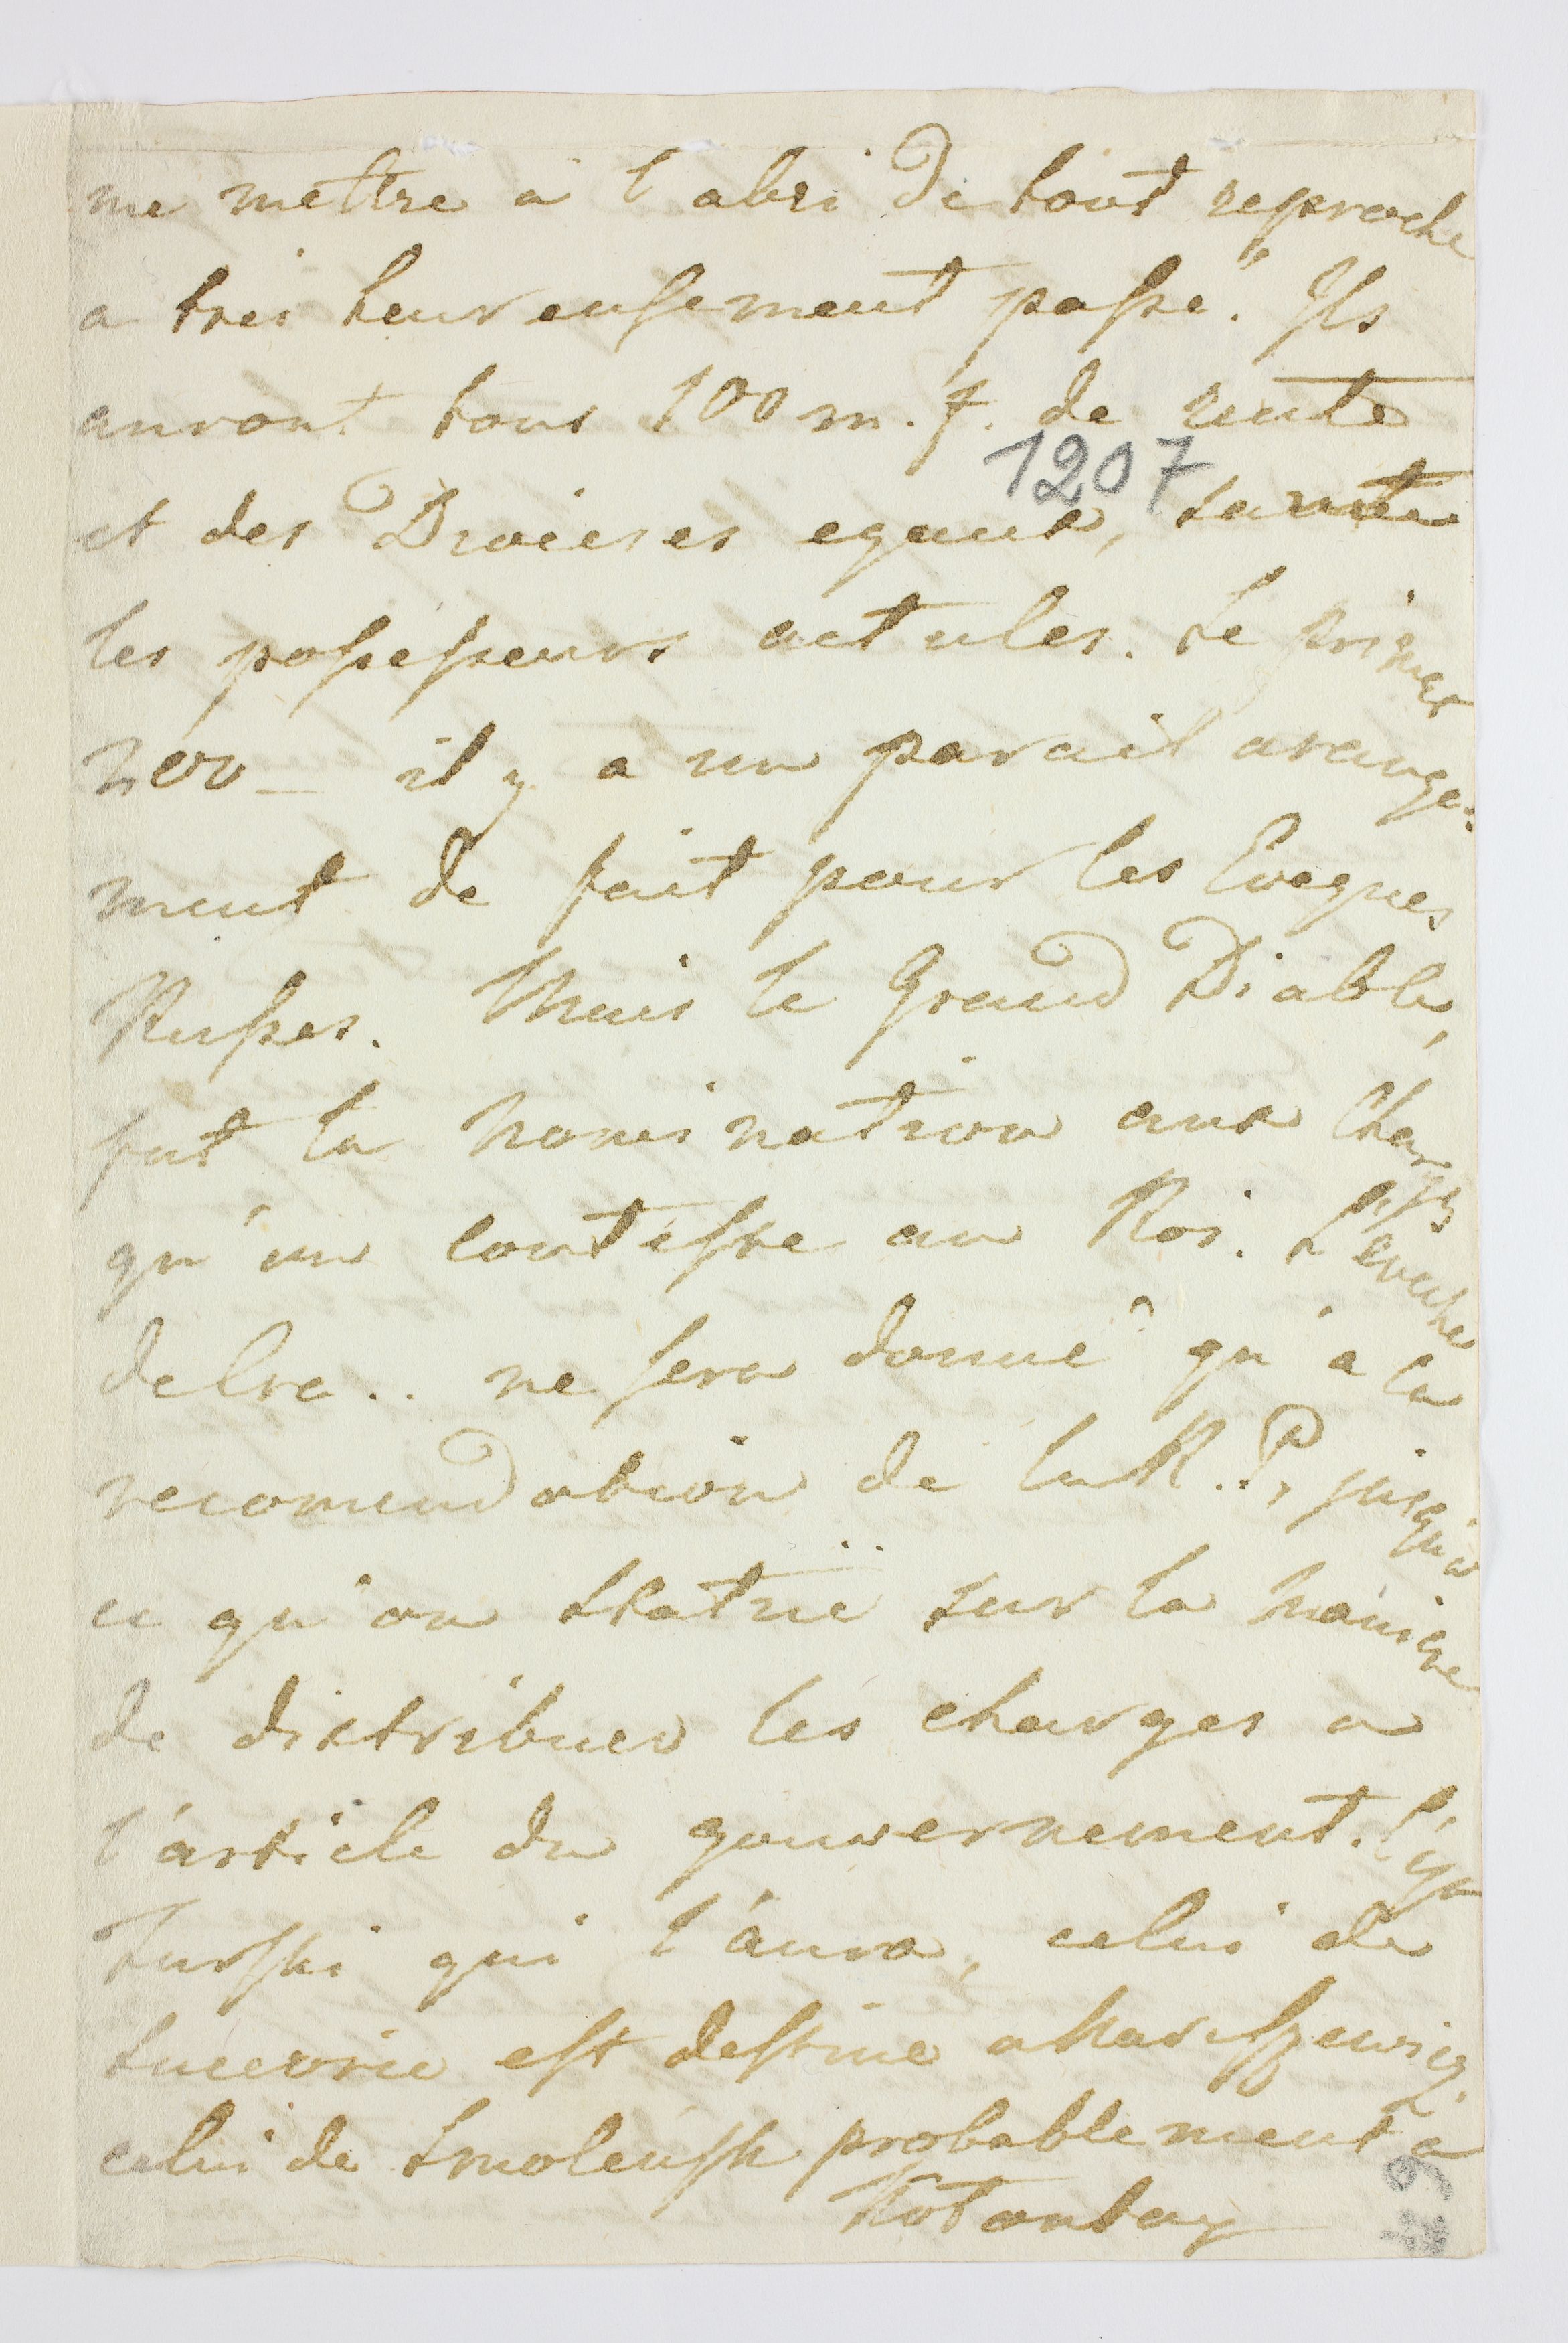 me mettre a l'abri de tout reproche
a tres heureusement passé. Ils
auront tous 100 m. f. de rente
1207
et des Dioieses egaux,
les possesseurs actules. Le primat
200 — il y a un pareil arange-
ment de fait pour les Eveques
Russes. Mais le Grand Diable,
fut la nomination aux Charges
qu'on conteste au Roi. L'eveché
de Cra.. ne sera donné qu'a la
recomendation de la R..P, jusqu'a
ce qu'on statüe sur la maniere
de distribuer les charges a
l'article du gouvernement. C'est
Turski qui l'aura, celui de
Luceorie est destine a Naruszewicz
celui de Smolensk probablement a
Kotontay